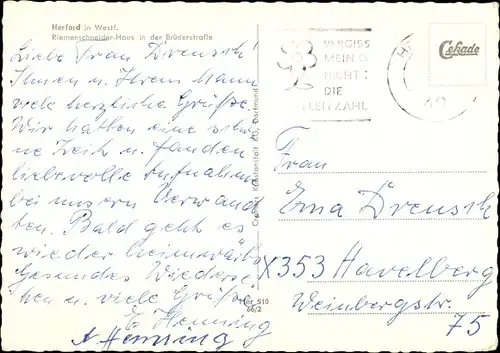 Herford in Westf.
Riemenschneider-Haus in der Brüderstraße
Liebe Frau Dreusch!
Ihnen u. Ihrem Mann
viele herzliche Grüße.
Wir hatten eine schö-
ne Zeit u. fanden
liebevolle Aufnahme
bei unsern Verwand-
ten. Bald geht es
wieder heimwärts.
Gesundes Wiederse-
hen u. viele Grüße
E. Henning
A Henning
Cekade
VERGISS
MEIN
NICHT
DIE
LEITZAHL
Frau
Erna Dreusch
X353 Havelberg
Weinbergstr.
75
Her 510
66/2